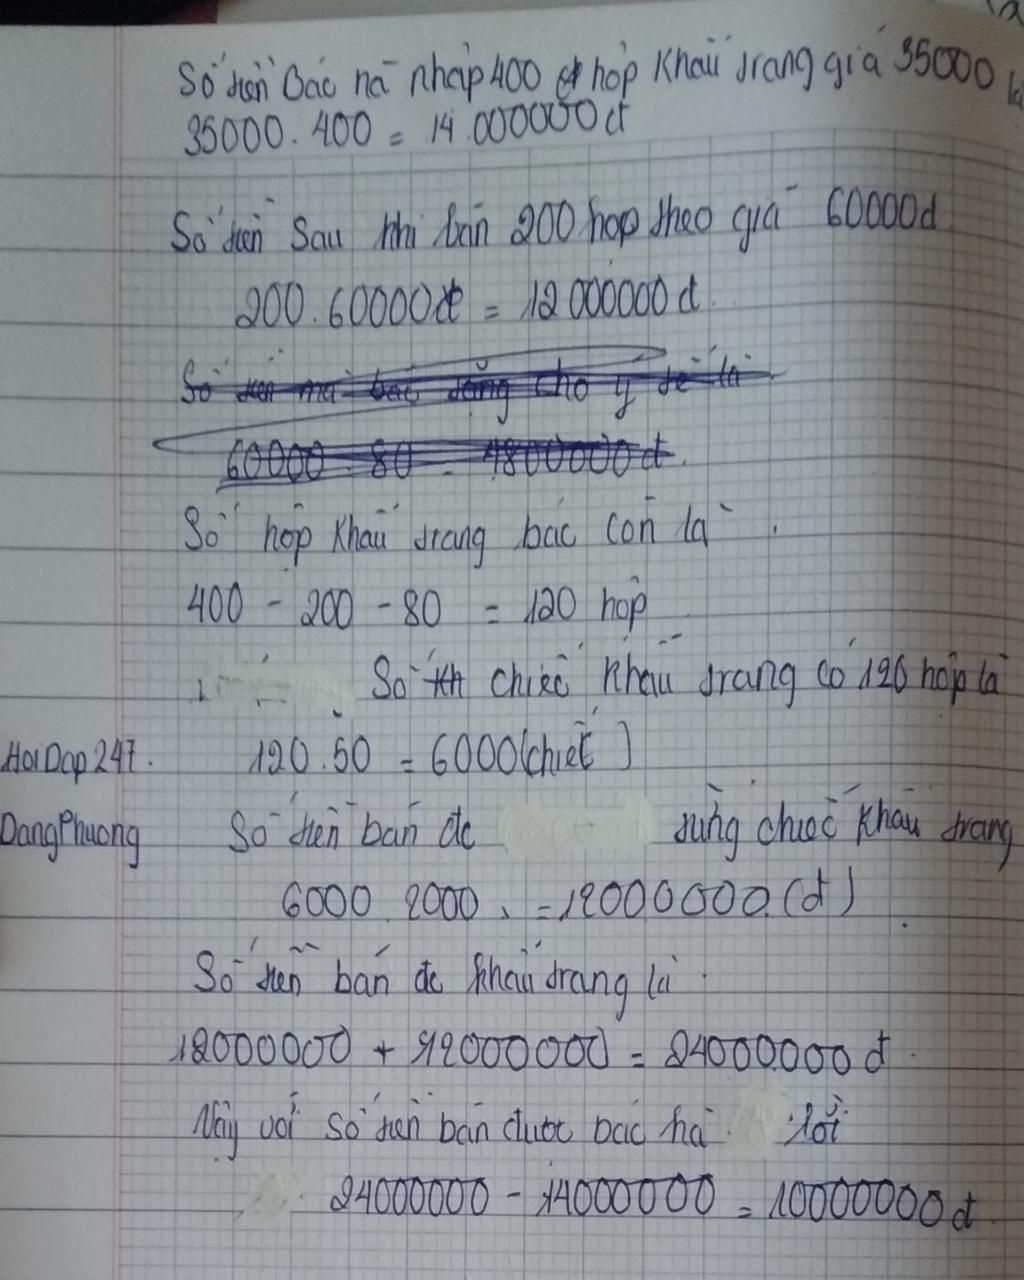 Số tiền Bác hà nhập 400 hộp khẩu trang giá 35000 là
35000.400 = 14.000000đ
Số tiền sau khi bán 200 hộp theo giá 60000đ
200.60000đ = 12000000đ.
Số tiền mà bác tặng cho y tế là
60000.80 = 4800000đ.
Số hộp khẩu trang bác còn lạ
400 - 200 - 80 = 120 hộp
Số chiếc khẩu trang có 120 hộp là
HoiDap247.
120.50 = 6000(chiếc)
DangPhuong
Số tiền bán đc từng chiếc khẩu trang
6000.2000. = 12000000.(đ)
Số tiền bán đc khẩu trang là.
12000000 + 12000000 = 24000000đ.
Vậy với số tiền bán được bác hà lời
24000000 - 14000000 = 10000000đ